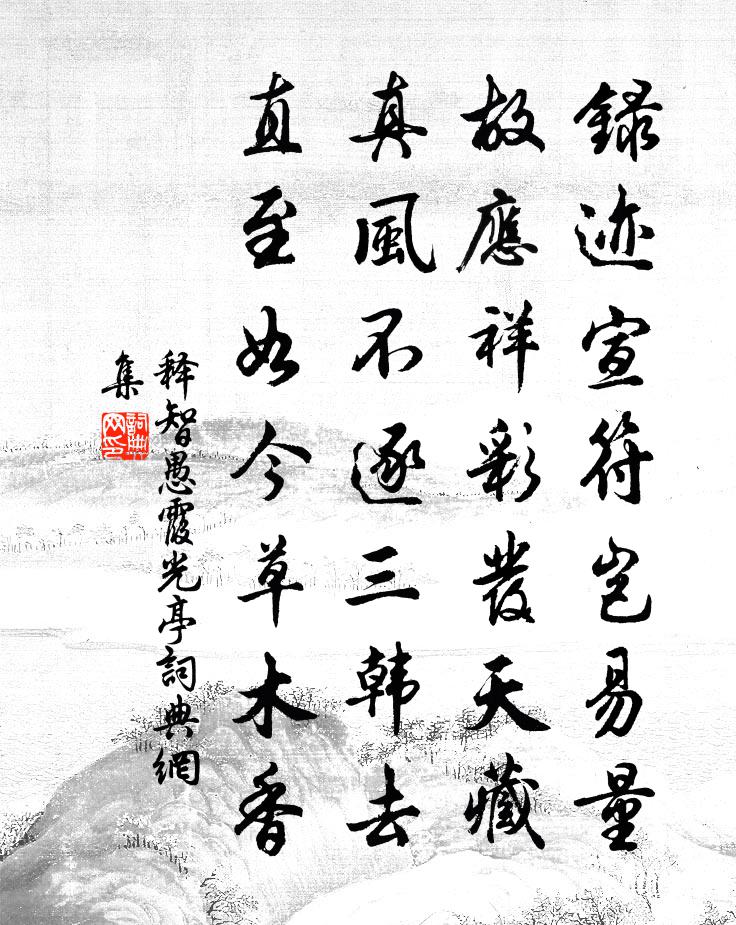 録迹宣符岂易量
故應祥彩發天藏
真風不逐三韩去
直至如今草木香
释智愚霞光亭詞典網
集
詞典网印